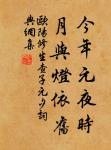 今年元夜時
月與燈依舊
歐陽修生查子元夕詞
典網集